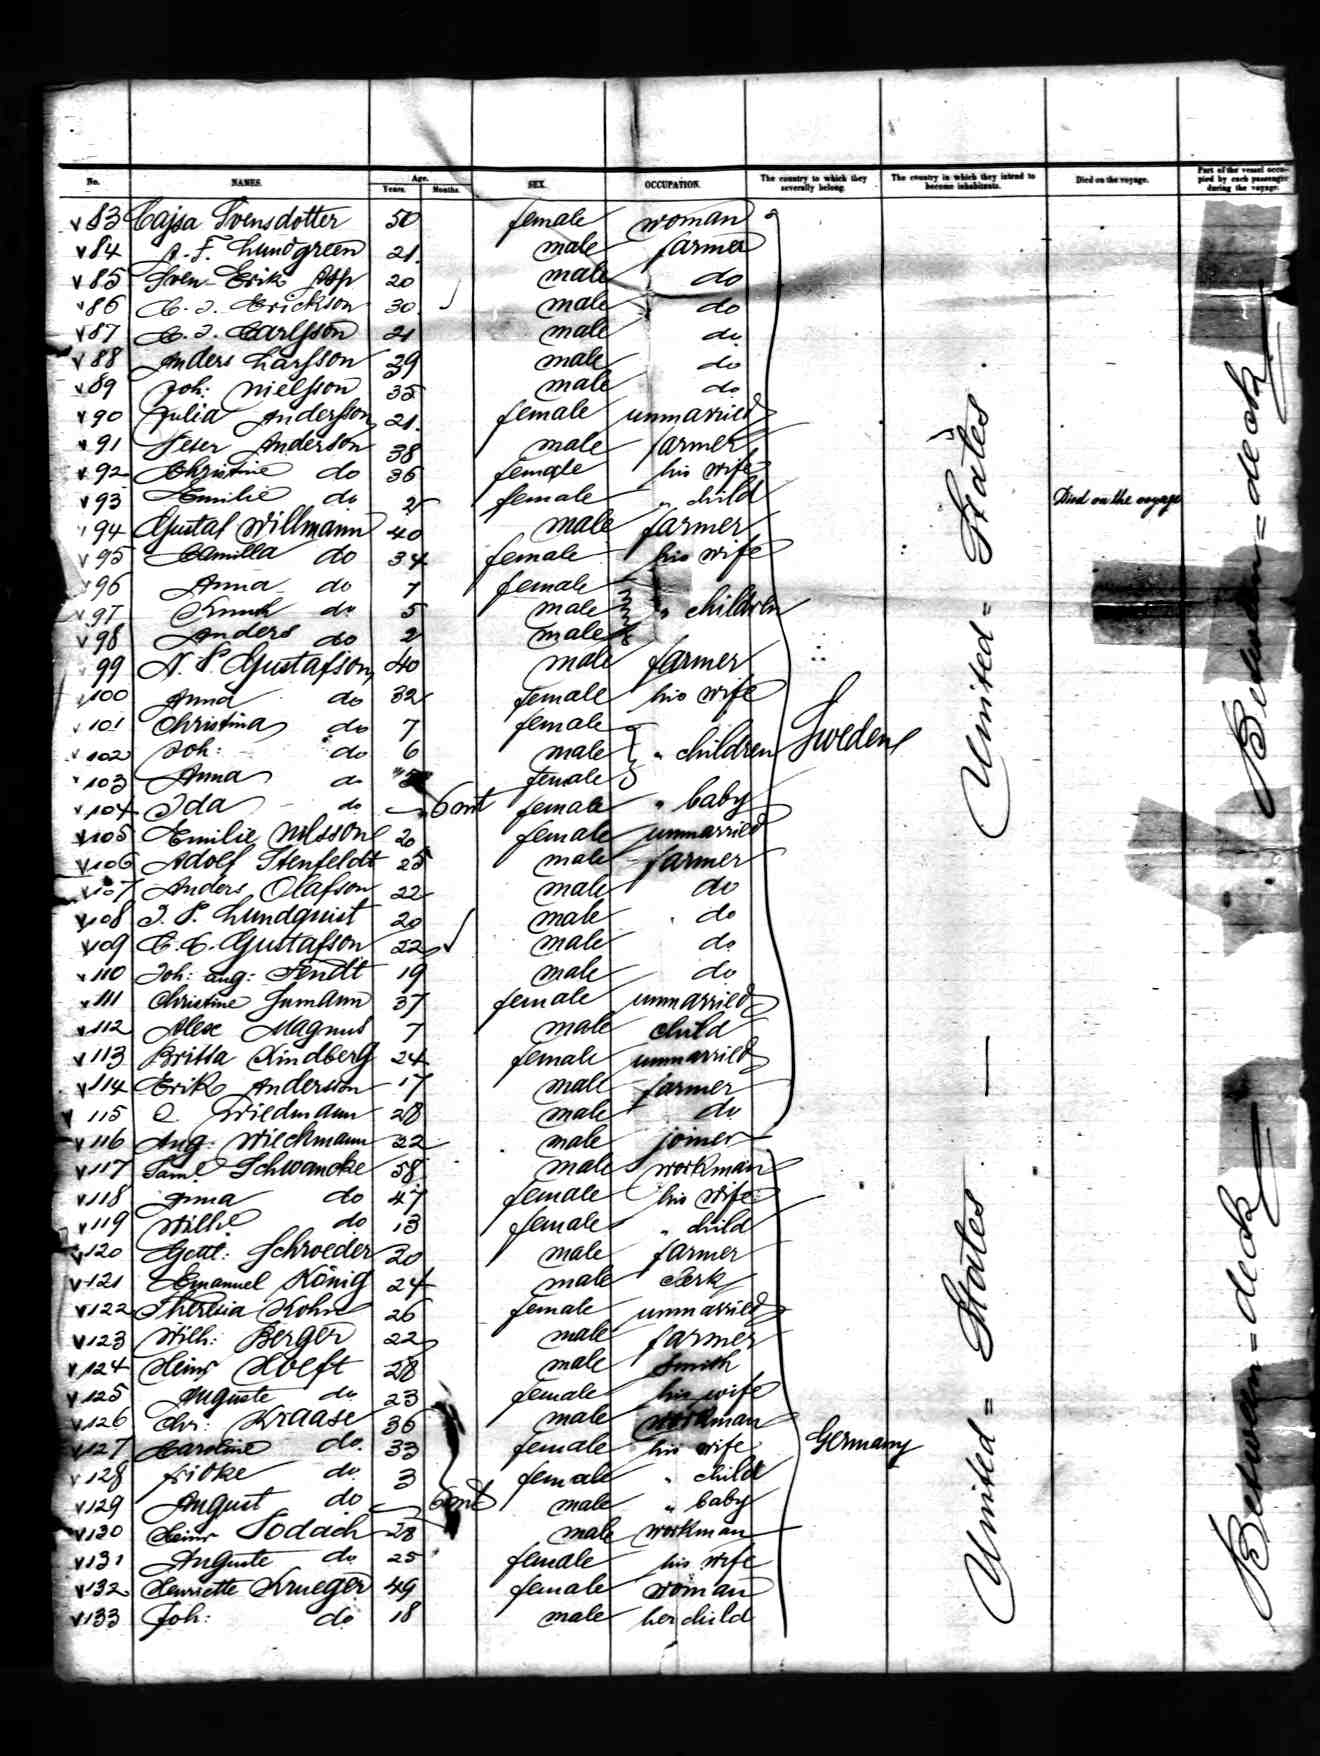 No. NAMES. Age. Years. Months. SEX. OCCUPATION. The country to which they severally belong. The country in which they intend to become inhabitants. Died on the voyage. Part of the vessel occupied by each passenger during the voyage.
83 Cajsa Svensdotter 50 female woman
84 A. F. Lundgreen 21 male farmer
85 Sven Erik Asp 20 male do
86 C. J. Erickson 30 male do
87 C. J. Carlsson 21 male do
88 Anders Larsson 29 male do
89 Joh: Nielsson 35 male do
90 Julia Andersson 21 female unmarried
91 Peter Anderson 38 male farmer
92 Christine do 36 female his wife
93 Emilie do 2 female " child Died on the voyage
94 Gustaf Willmann 40 male farmer
95 Camilla do 34 female his wife
96 Anna do 7 female
97 do 5 male " children
98 Anders do 2 male
99 N. P. Gustafson 40 male farmer
100 Anna do 32 female his wife
101 Christina do 7 female
102 Joh: do 6 male " children Sweden United = States
103 Anna do female
104 Ida do 6 mt female " baby
105 Emilie Nilsson 20 female unmarried
106 Adolf Stenfeldt 25 male farmer
107 Anders Olafson 22 male do
108 J. P. Lundquist 20 male do
109 C. C. Gustafson 22 male do
110 Joh: aug: Fendt 19 male do
111 Christine 37 female unmarried
112 Alex Magnus 7 male child
113 Britta Lindberg 24 female unmarried
114 Erik Anderson 17 male farmer
115 Wiedmann 28 male do
116 Aug: Wieckmann 32 male joiner
117 Saml Schwancke 58 male workman
118 Anna do 47 female his wife
119 Wilhe do 13 female " child
120 Gottl: Schroeder 30 male farmer
121 Emanuel König 24 male clerk
122 Theresia Kohn 26 female unmarried
123 Wilh: Berger 22 male farmer
124 Heinr Hoeft 28 male Smith
125 Auguste do 23 female his wife
126 Chr: Kraase 36 male workman
127 Caroline do 33 female his wife Germany United = States
128 fridke do 3 female " child
129 August do 6 mt male " baby
130 Heinr Sodach 28 male workman
131 Auguste do 25 female his wife
132 Henriette Krueger 49 female woman
133 Joh: do 18 male her child
Between = deck
Between = deck